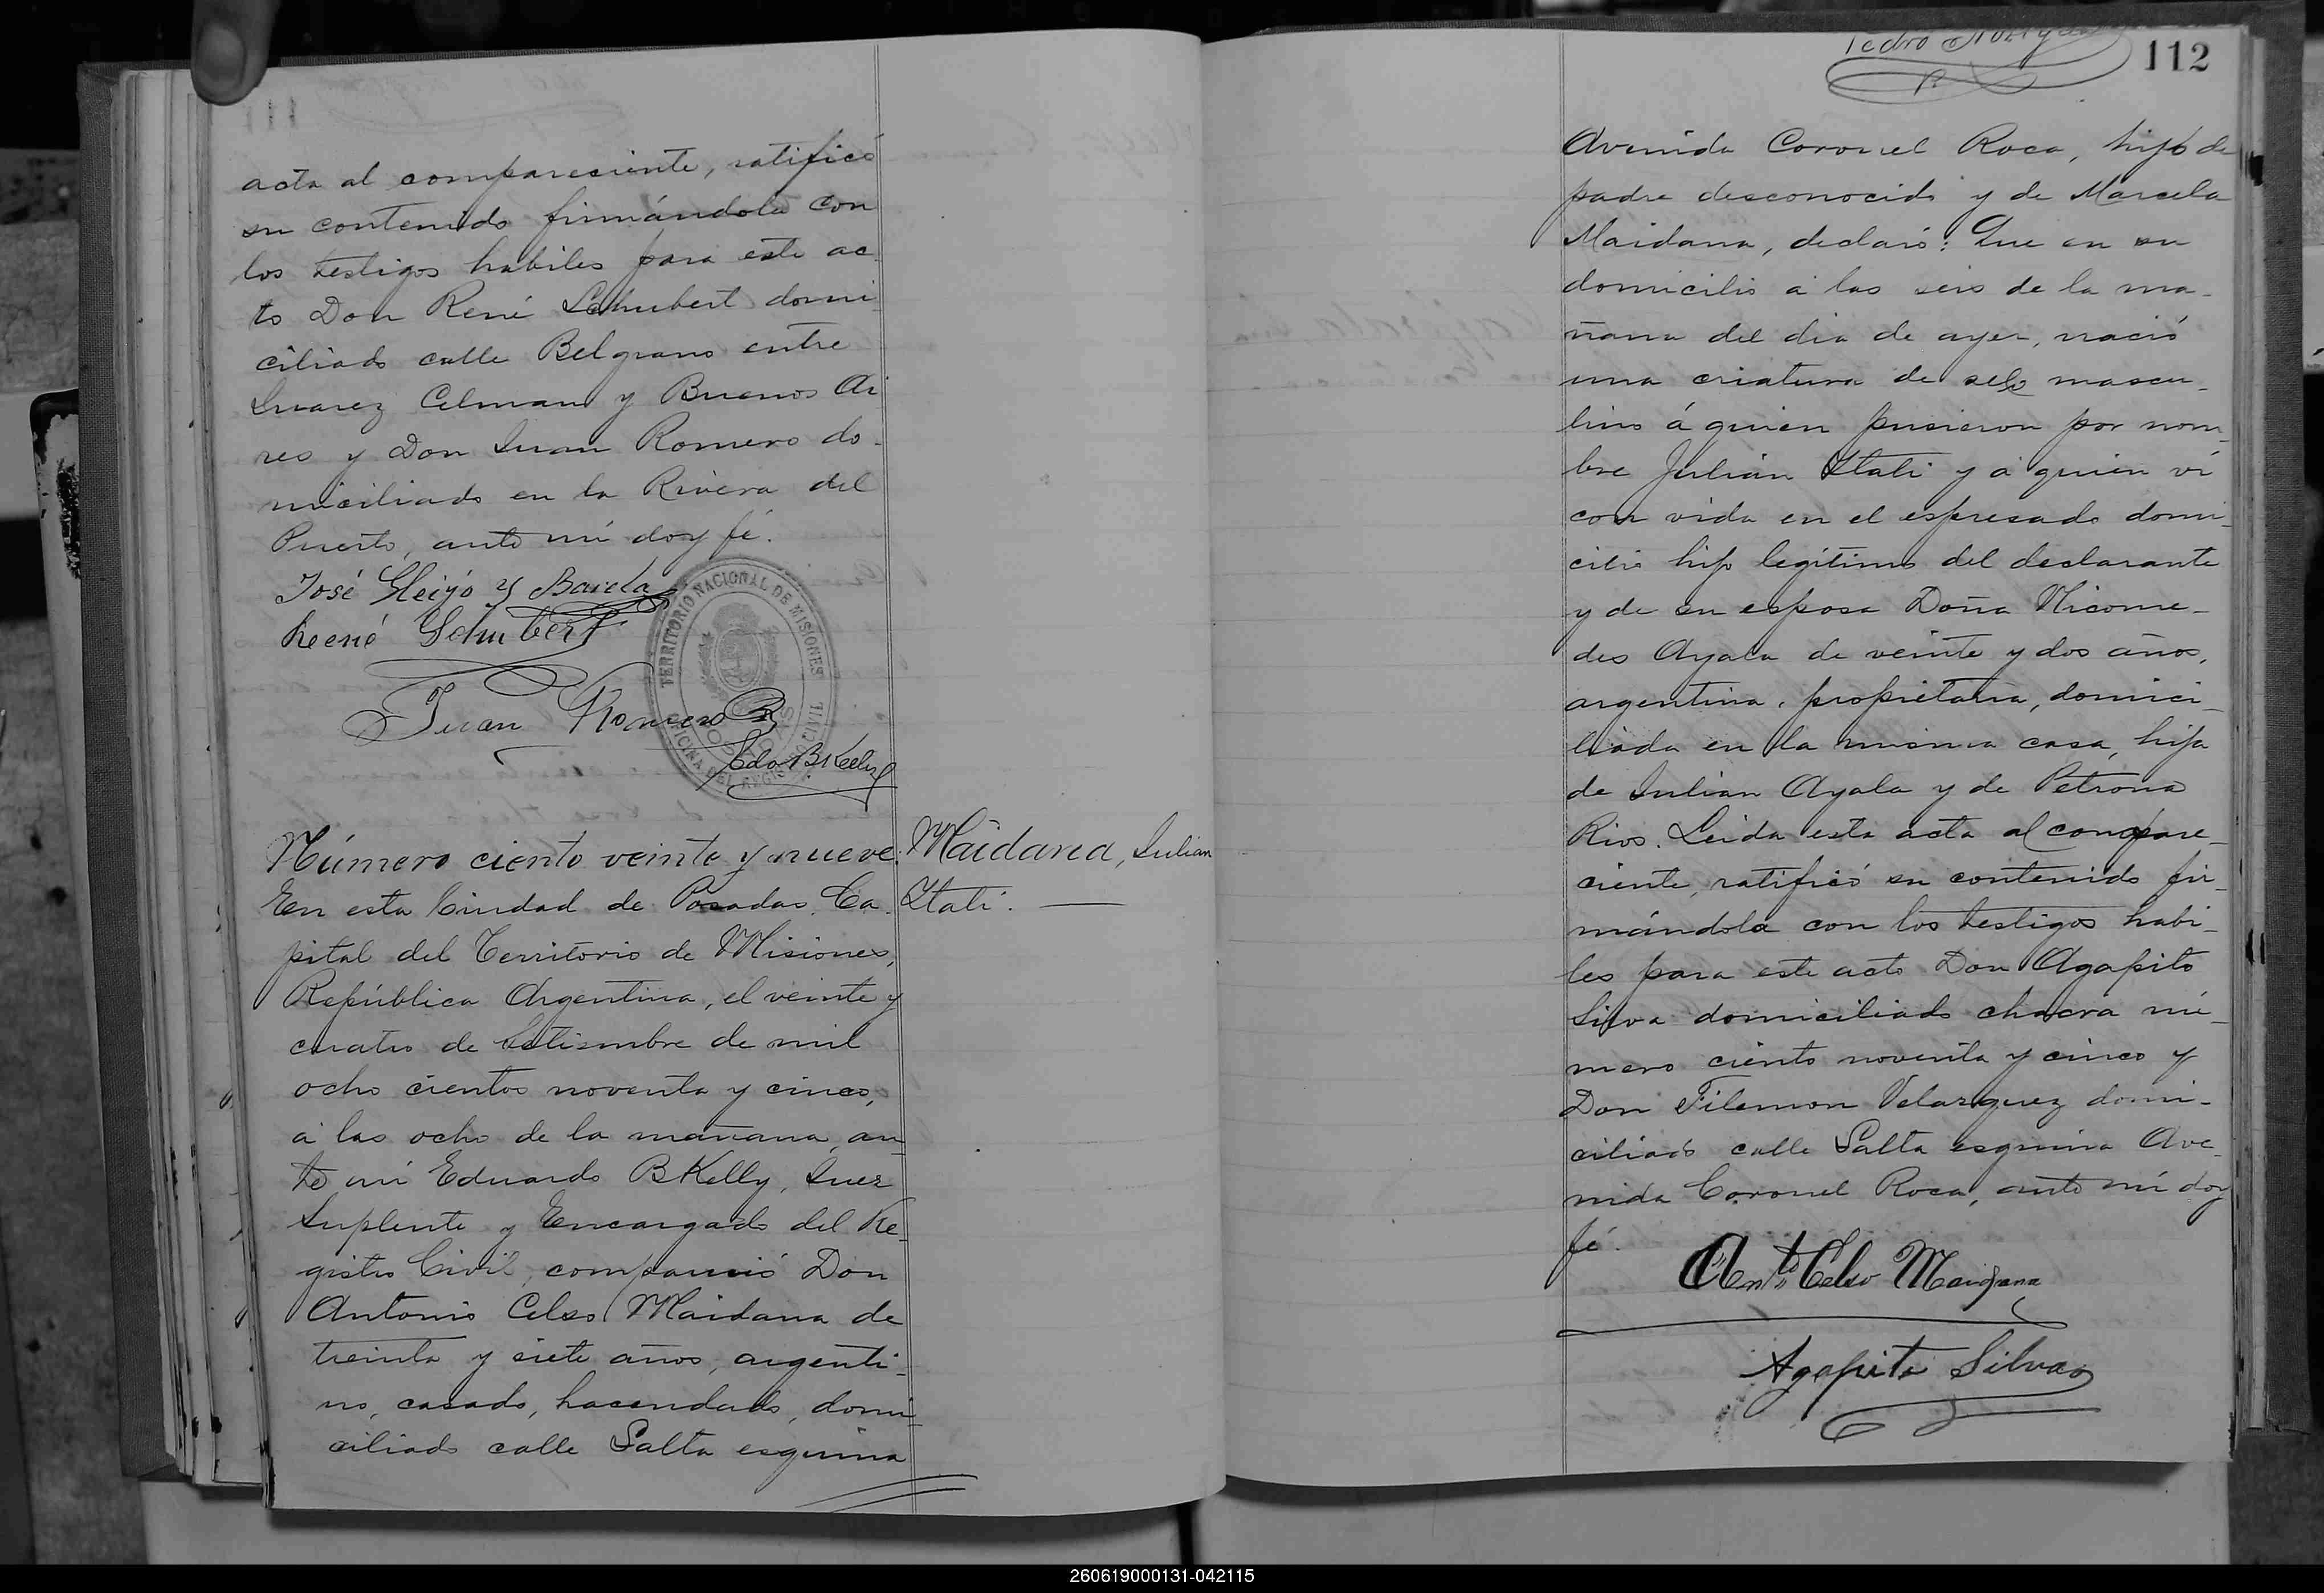 acta al compareciente, ratificó
su contenido firmándola con
los testigos habiles para este ac
to Don René Schubert domi
ciliado calle Belgrano entre
Juarez Celman y Buenos Ai
res y Don Juan Romero do-
miciliado en la Rivera del
Puerto, ante mi doy fé.
José Gleijo y
Reené Schubert
Juan Romero
Edo B Kelly
TERRITORIO NACIONAL DE MISIONES
OFICINA DEL REGISTRO CIVIL
POSADAS
Número ciento veinte y nueve.
En esta Ciudad de Posadas, Ca-
pital del Territorio de Misiones,
República Argentina, el veinte y
cuatro de Setiembre de mil
ocho cientos noventa y cinco,
á las ocho de la mañana, an
te mi Eduardo B Kelly, Juez
Suplente y Encargado del Re-
gistro Civil, compareció Don
Antonio Celso Maidana de
treinta y siete años, argenti-
no, casado, hacendado, domi
ciliado calle Salta esquina
Maidana, Julian
Itati.
Pedro
112
Avenida Coronel Roca, hijo de
padre desconocido y de Marcela
Maidana, declaró: Que en su
domicilio á las seis de la ma-
ñana del dia de ayer, nació
una criatura de sexo mascu-
lino á quien pusieron por nom-
bre Julián Itati y á quien ví
con vida en el espresado domi-
cilio hijo legítimo del declarante
y de su esposa Doña Nicome-
des Ayala de veinte y dos años,
argentina, propietaria, domici-
liada en la misma casa, hija
de Julian Ayala y de Petrona
Rios. Leida esta acta al compare-
ciente, ratificó su contenido fir-
mándola con los testigos habi-
les para este acto Don Agapito
Silva domiciliado chacra nú-
mero ciento noventa y cinco y
Don Filemon Velazquez domi-
ciliado calle Salta esquina Ave-
nida Coronel Roca, ante mí doy
fé.
Anto. Celso Maidana
Agapito Silva
260619000131-042115